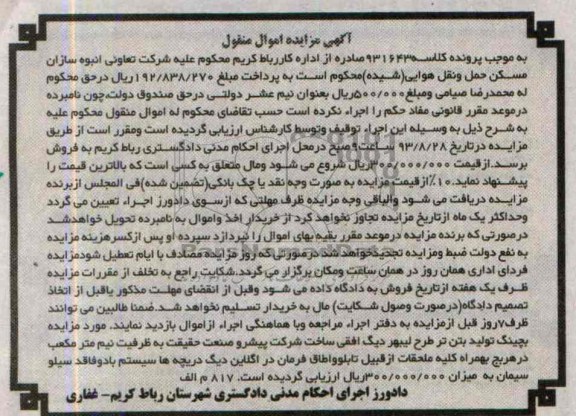 آگهی مزایده اموال منقول
به موجب پرونده کلاسه۹۳۱۶۴۳صادره از اداره کاررباط کریم محکوم علیه شرکت تعاونی انبوه سازان
مسکن حمل ونقل هوایی(شیده)محکوم است به پرداخت مبلغ ۱۹۲/۸۳۸/۲۷۰ریال درحق محکوم
له محمدرضا صیامی ومبلغ۵۰۰/۰۰۰ریال بعنوان نیم عشر دولتی درحق صندوق دولت،چون نامبرده
درموعد مقرر قانونی مفاد حکم را اجراء نکرده است حسب تقاضای محکوم له اموال منقول محکوم علیه
به شرح ذیل به وسیله این اجراء توقیف وتوسط کارشناس ارزیابی گردیده است ومقرر است از طریق
مزایده درتاریخ ۹۳/۸/۲۸ ساعت۹صبح درمحل اجرای احکام مدنی دادگستری رباط کریم به فروش
برسد.ازقیمت ۳۰۰/۰۰۰/۰۰۰ریال شروع می شود ومال متعلق به کسی است که بالاترین قیمت را
پیشنهاد نماید.۱۰٪ازقیمت مزایده به صورت وجه نقد یا چک بانکی(تضمین شده)فی المجلس ازبرنده
مزایده دریافت می شود والباقی وجه مزایده ظرف مهلتی که ازسوی دادورز اجراء تعیین می گردد
وحداکثر یک ماه ازتاریخ مزایده تجاوز نخواهد کرد از خریدار اخذ واموال به نامبرده تحویل خواهدشد
درصورتی که برنده مزایده درموعد مقرر بقیه بهای اموال را نپردازد سپرده او پس ازکسرهزینه مزایده
به نفع دولت ضبط ومزایده تجدیدخواهد شد درصورتی که روز مزایده مصادف با ایام تعطیل شودمزایده
فردای اداری همان روز در همان ساعت ومکان برگزار می گردد.شکایت راجع به تخلف از مقررات مزایده
ظرف یک هفته ازتاریخ فروش به دادگاه داده می شود وقبل از انقضای مهلت مذکور یاقبل از اتخاذ
تصمیم دادگاه(درصورت وصول شکایت) مال به خریدار تسلیم نخواهد شد.ضمنا طالبین می توانند
ظرف۷روز قبل ازمزایده به دفتر اجراء مراجعه وبا هماهنگی اجراء ازاموال بازدید نمایند. مورد مزایده
بچینگ تولید بتن تر طرح لیبهر دیگ افقی ساخت شرکت پیشرو صنعت حقیقت به ظرفیت نیم متر مکعب
درهربچ بهمراه کلیه ملحقات ازقبیل تابلوواطاق فرمان در اگلاین دیگ دریچه ها سیستم بادوفاقد سیلو
سیمان به میزان ۳۰۰/۰۰۰/۰۰۰ریال ارزیابی گردیده است. ۸۱۷ م الف
دادورز اجرای احکام مدنی دادگستری شهرستان رباط کریم- غفاری